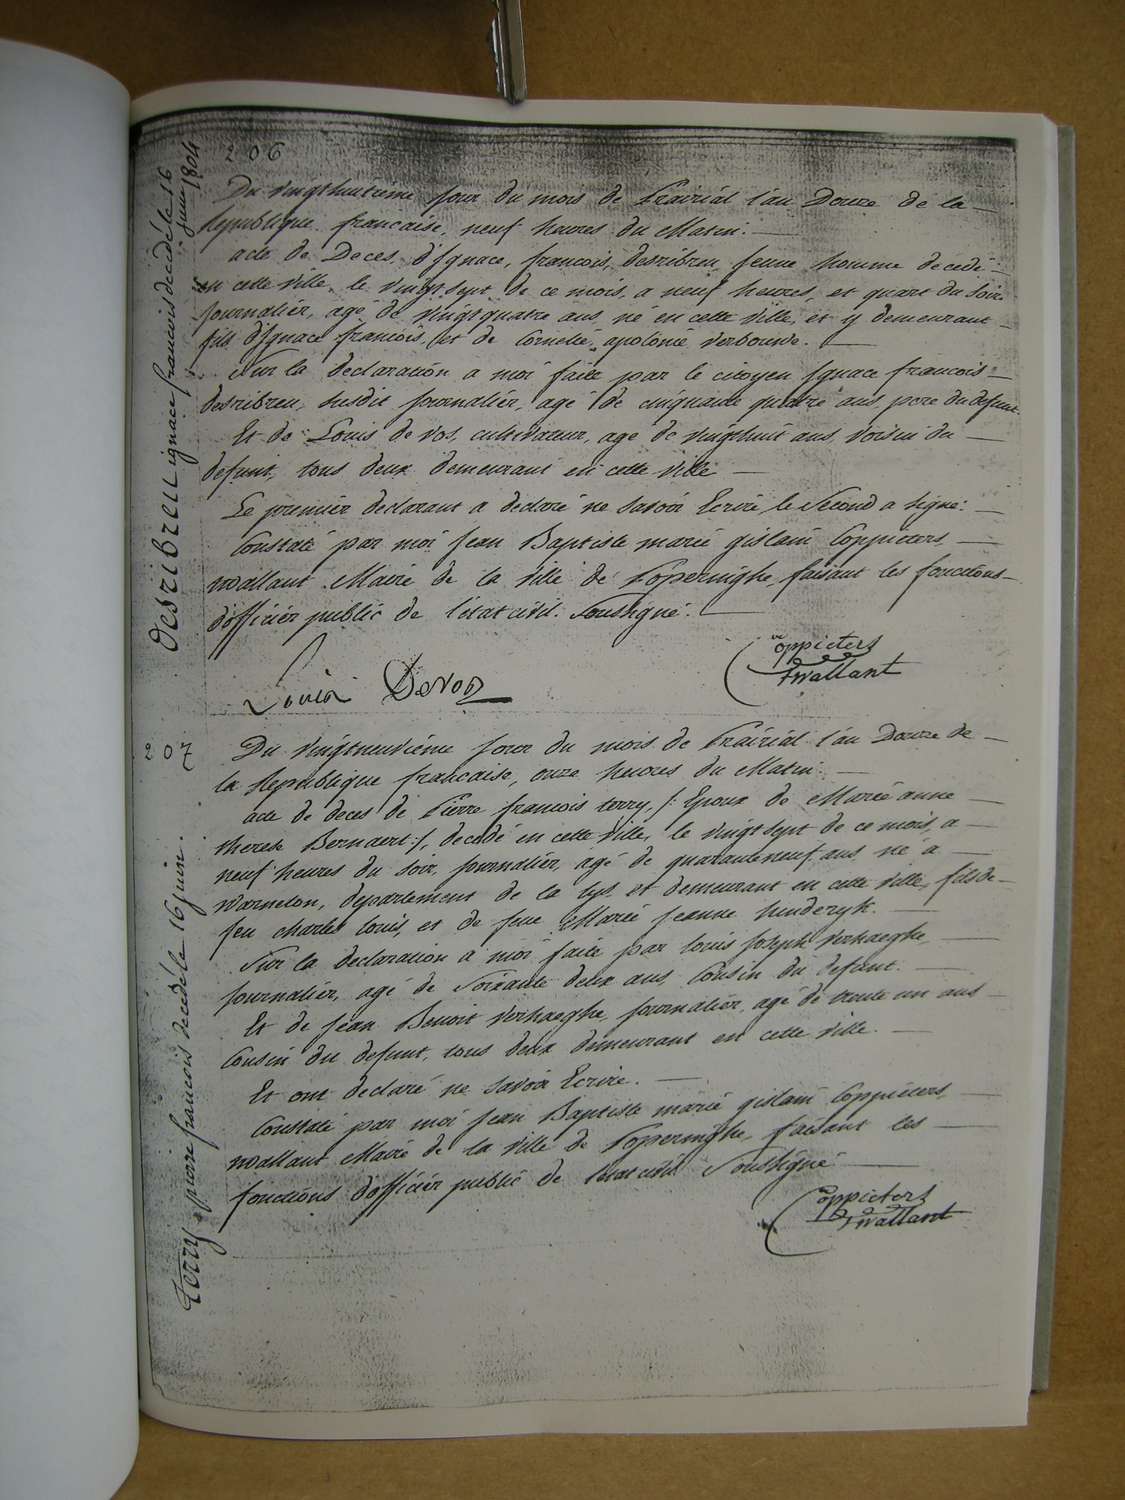 206
desribreu ignace francois decedé le 16
juin 1804
Du vingthuitieme jour du mois de Prairial l'an Douze de la
Republique francaise, neuf heures du Matin.
acte de Deces, d'Ignace, francois, desribreu, jeune homme decedé
en cette ville, le vingtsept de ce mois, a neuf heures, et quart du soir
journalier, agé de vingtquatre ans, né en cette ville, et y demeurant
fils d'Ignace francois, et de Cornelie, apolonie verbouwe.
Sur la declaration a moi faite par le citoyen Ignace francois
desribreu, susdit journalier, agé de cinquante quatre ans, pere du defunt
Et de Louis de vos, cultivateur, agé de vingthuit ans, voisin du
defunt, tous deux demeurant en cette ville
Le premier declarant a declaré ne savoir Ecrire le Second a signé:
Constaté par moi Jean Baptiste marie gislain Coppieters
wallant Maire de la ville de Poperinghe, faisant les fonctions
d'officier public de l'etat civil. Soussigné.
Louis Devos
Coppieters
wallant
207
Terry pierre francois decedé le 16 juin.
Du vingtneuvieme jour du mois de Prairial l'an Douze de
la Republique francaise, onze heures du Matin.
acte de deces de Pierre francois terry, /: Epoux de Marie anne
therese Bernaert :/, decedé en cette ville, le vingtsept de ce mois, a
neuf heures du soir, journalier, agé de quaranteneuf ans, né a
warneton, departement de la lys, et demeurant en cette ville, fils de
feu charles louis, et de feue Marie Jeanne hinderyk.
Sur la declaration a moi faite par louis Joseph verhaeghe,
journalier, agé de Soixante deux ans, Cousin du defunt.
Et de Jean Benoit verhaeghe journalier, agé de trente un ans
Cousin du defunt, tous deux demeurant en cette ville.
Et ont declaré ne savoir Ecrire.
Constaté par moi Jean Baptiste marie gislain Coppieters
wallant Maire de la ville de Poperinghe, faisant les
fonctions d'officier public de l'etat civil Soussigné
Coppieters
wallant